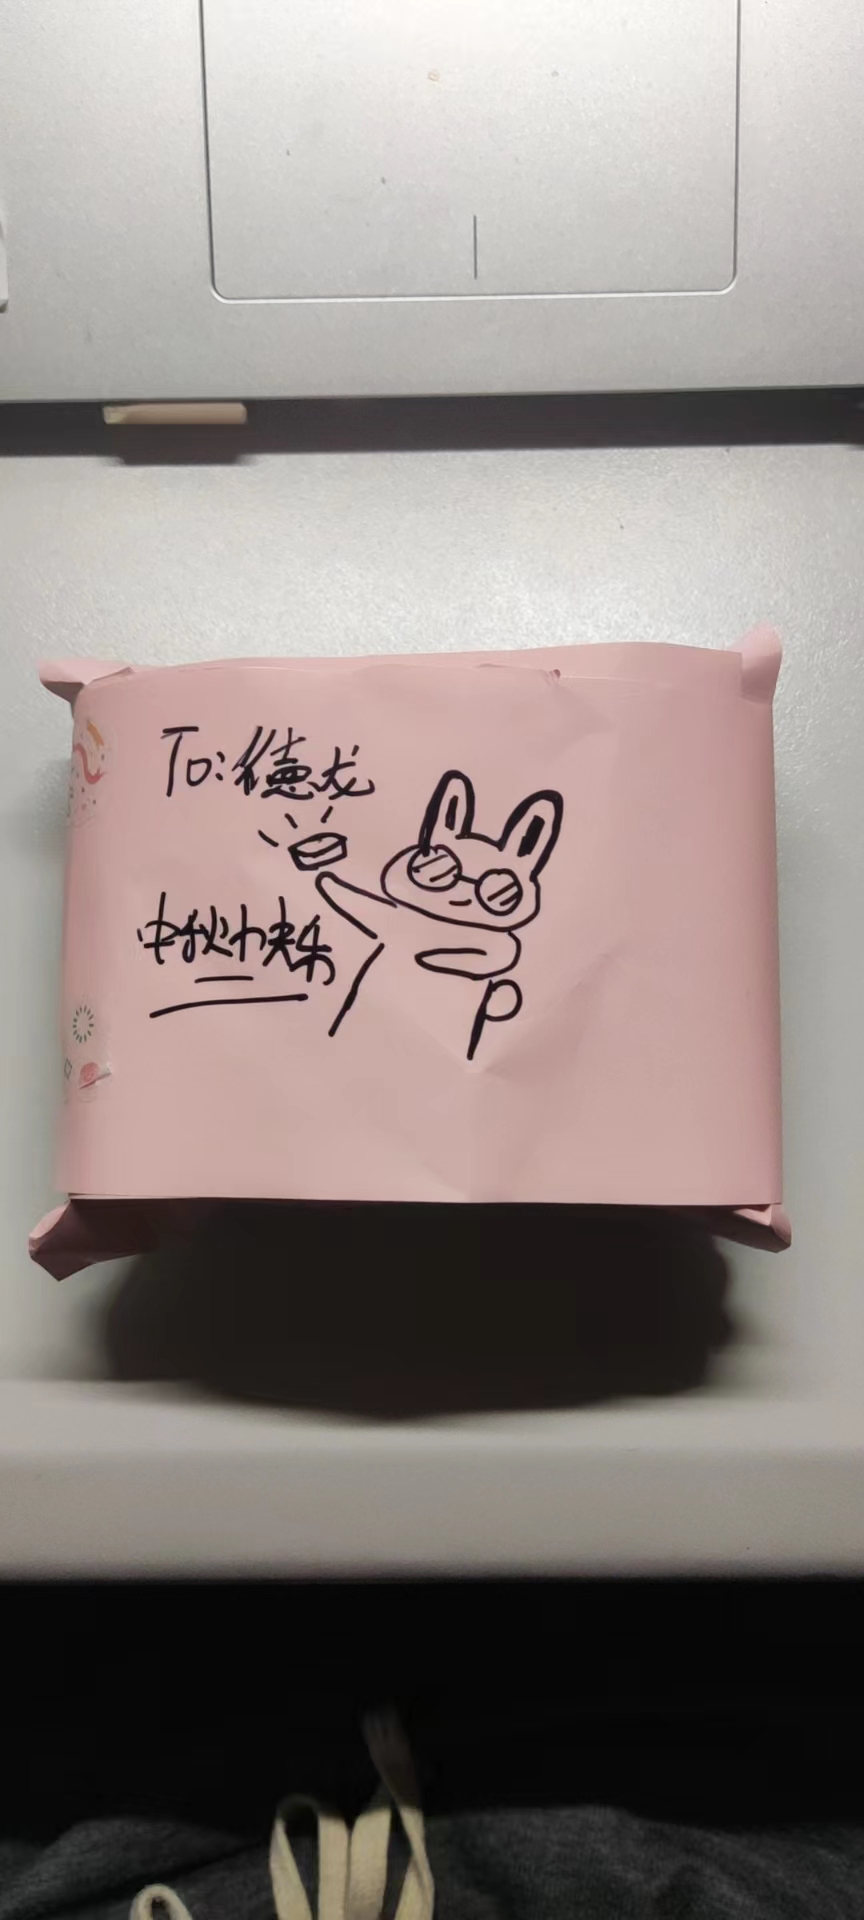 To:德龙
中秋快乐